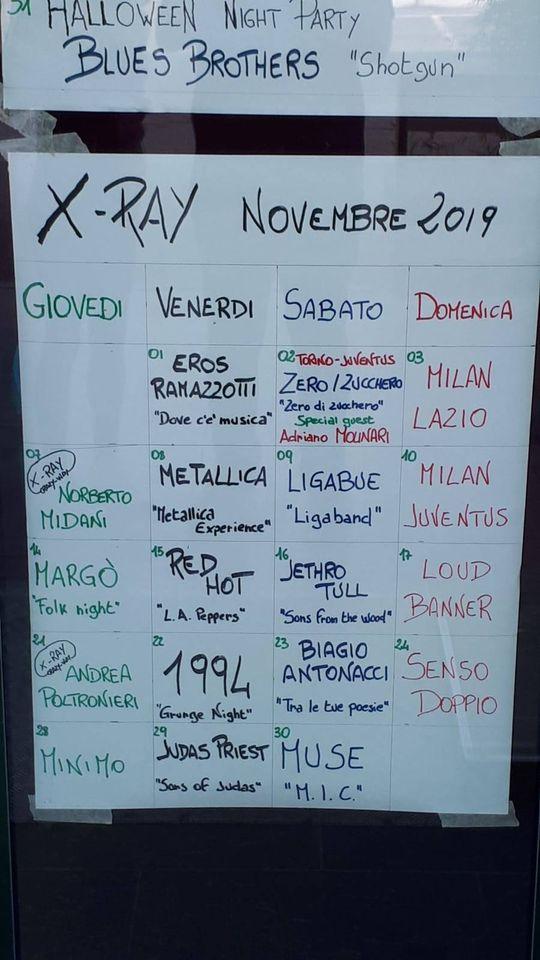 31 HALLOWEEN NIGHT PARTY
BLUES BROTHERS "Shotgun"
X-RAY NOVEMBRE 2019
GIOVEDI VENERDI SABATO DOMENICA
01
EROS
RAMAZZOTTI
"Dove c'e' musica"
02 TORINO-JUVENTUS
ZERO/ZUCCHERO
"Zero di zucchero"
Special guest
Adriano MOLINARI
03
MILAN
LAZIO
07
X-RAY
NORBERTO
MIDANI
08
METALLICA
"Metallica
Experience"
09
LIGABUE
"Ligaband"
10
MILAN
JUVENTUS
14
MARGÒ
"Folk night"
15
RED
HOT
"L.A. Peppers"
16
JETHRO
TULL
"Sons from the wood"
17
LOUD
BANNER
21
X-RAY
ANDREA
POLTRONIERI
22
1994
"Grunge Night"
23
BIAGIO
ANTONACCI
"Tra le tue poesie"
24
SENSO
DOPPIO
28
MINIMO
29
JUDAS PRIEST
"Sons of Judas"
30
MUSE
"M.I.C."